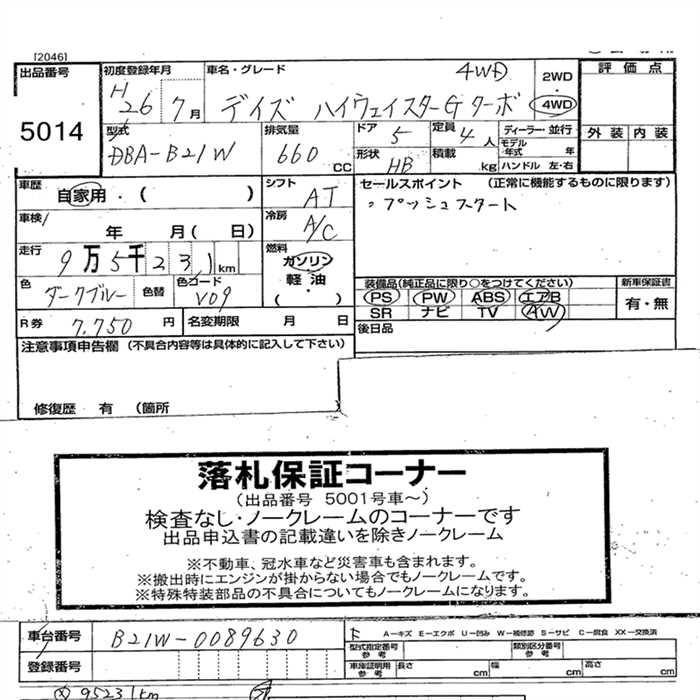 [2046]
出品番号
5014
初度登録年月
H26 7月
車名・グレード
4WD
デイズ ハイウェイスターG ターボ
2WD
4WD
評価点
外装 内装
型式
DBA-B21W
排気量
660 CC
ドア 5
定員 4人
形状 HB
積載 kg
ディーラー・並行
モデル年式 年
ハンドル 左・右
車歴
自家用・( )
シフト AT
冷房 A/C
セールスポイント (正常に機能するものに限ります)
プッシュスタート
車検
年 月( 日)
走行
9万5千231km
燃料
ガソリン
軽油
( )
色
ダークブルー
色替
色コード
V09
装備品(純正品に限り○をつけてください)
PS PW ABS エアB
SR ナビ TV AW
新車保証書
有・無
R券 7,750 円
名変期限 月 日
後日品
注意事項申告欄 (不具合内容等は具体的に記入して下さい)
修復歴 有 (箇所
落札保証コーナー
(出品番号 5001号車~)
検査なし・ノークレームのコーナーです
出品申込書の記載違いを除きノークレーム
※不動車、冠水車など災害車も含まれます。
※搬出時にエンジンが掛からない場合でもノークレームです。
※特殊特装部品の不具合についてもノークレームになります。
車台番号 B21W-0089630
F
A−キズ E−エクボ U−凹み W−補修跡 S−サビ C−腐食 XX−交換済
型式指定番号 参考
類別区分番号 参考
登録番号
車庫証明用 参考
長さ cm 幅 cm 高さ cm
95231km